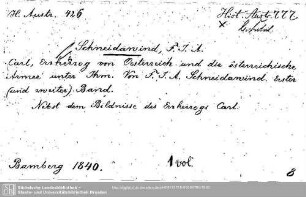 H. Austr. 426
Hist. Austr. 777
Schneidawind, F. J. A.
Carl, Erzherzog von Österreich und die österreichische
Armee unter Ihm. Von F. J. A. Schneidawind. Erster
(und zweiter) Band.
Nebst dem Bildnisse des Erzherzogs Carl.
Bamberg 1840.
1 vol
8
Sächsische Landesbibliothek -
Staats- und Universitätsbibliothek Dresden